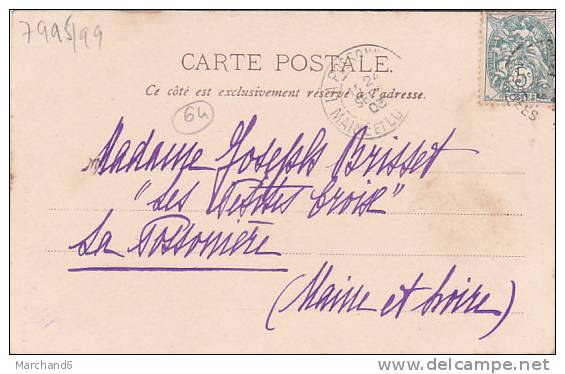 7995/99
CARTE POSTALE.
Ce côté est exclusivement réservé à l'adresse.
64
Madame Joseph Brisset
"Les Petites Croix"
La Possonière
(Maine et Loire)
MAINE-ET-L
5
Marchand6
delcampe.net